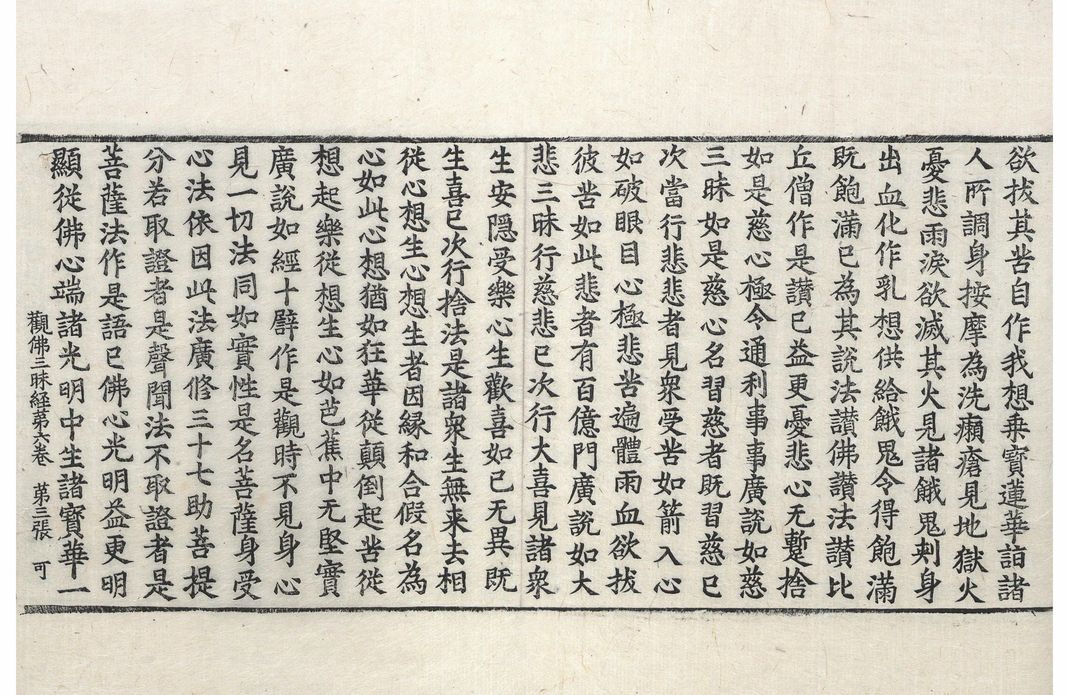 欲拔其苦自作我想乗寶蓮華詣諸
人所調身按摩為洗癩瘡見地獄火
憂悲雨淚欲滅其火見諸餓鬼刺身
出血化作乳想供給餓鬼令得飽滿
既飽滿已為其說法讃佛讃法讃比
丘僧作是讃已益更憂悲心无蹔捨
如是慈心極令通利事事廣說如慈
三昧如是慈心名習慈者既習慈已
次當行悲悲者見衆受苦如箭入心
如破眼目心極悲苦遍體雨血欲拔
彼苦如此悲者有百億門廣說如大
悲三昧行慈悲已次行大喜見諸衆
生安隱受樂心生歡喜如已无異既
生喜已次行捨法是諸衆生無来去相
從心想生心想生者因緣和合假名為
心如此心想猶如狂華從顛倒起苦從
想起樂從想生心如芭蕉中无堅實
廣說如經十辟作是觀時不見身心
見一切法同如實性是名菩薩身受
心法依因此法廣修三十七助菩提
分若取證者是聲聞法不取證者是
菩薩法作是語已佛心光明益更明
顯從佛心端諸光明中生諸寶華一
觀佛三昧経第六卷 第三張 可